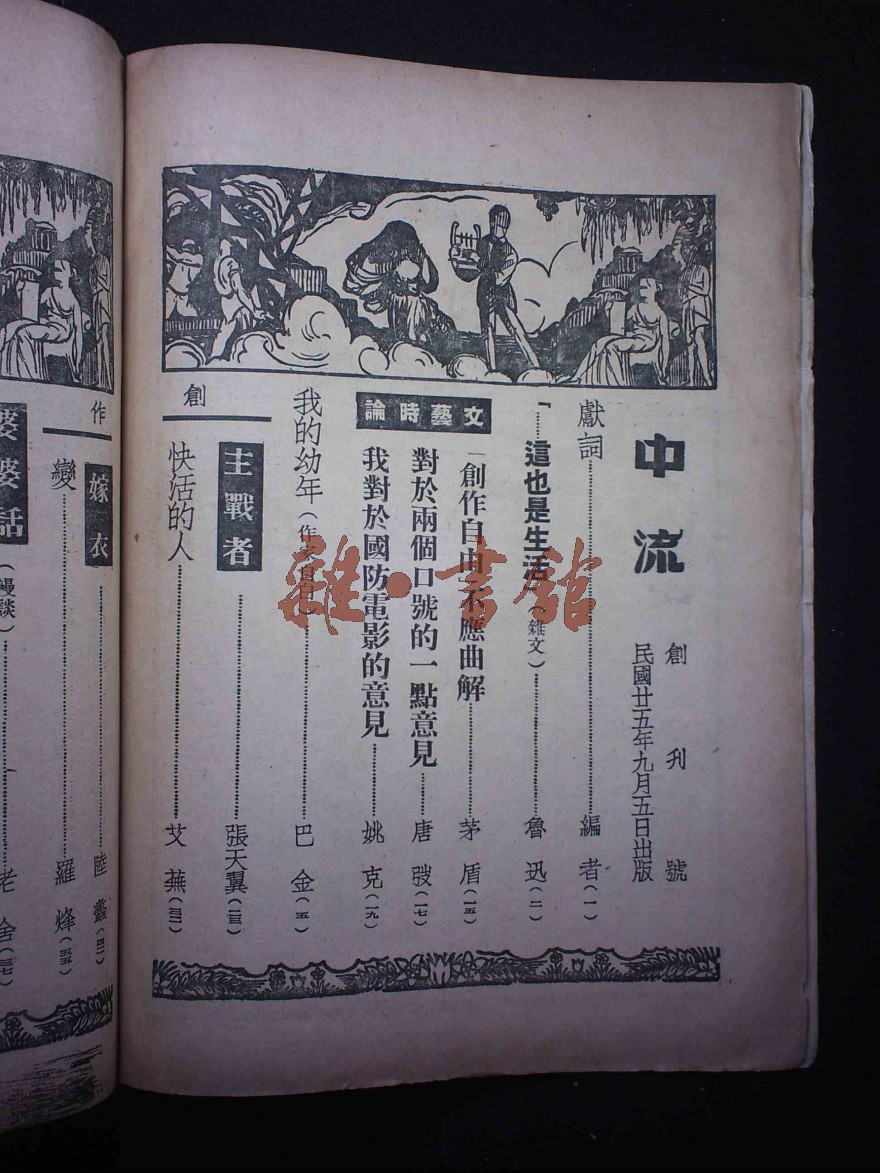 中流
創刊號
民國廿五年九月五日出版
獻詞……編者(一)
「……這也是生活」(雜文)……魯迅(二)
文藝時論
「創作自由」不應曲解……茅盾(一五)
對於兩個口號的一點意見……唐弢(一七)
我對於國防電影的意見……姚克(一九)
我的幼年(作家自白)……巴金(五)
創
主戰者……張天翼
快活的人……艾蕪
作
嫁衣……陸蠡
變……羅烽(五五)
婆婆話(漫談)……老舍
雜·書館